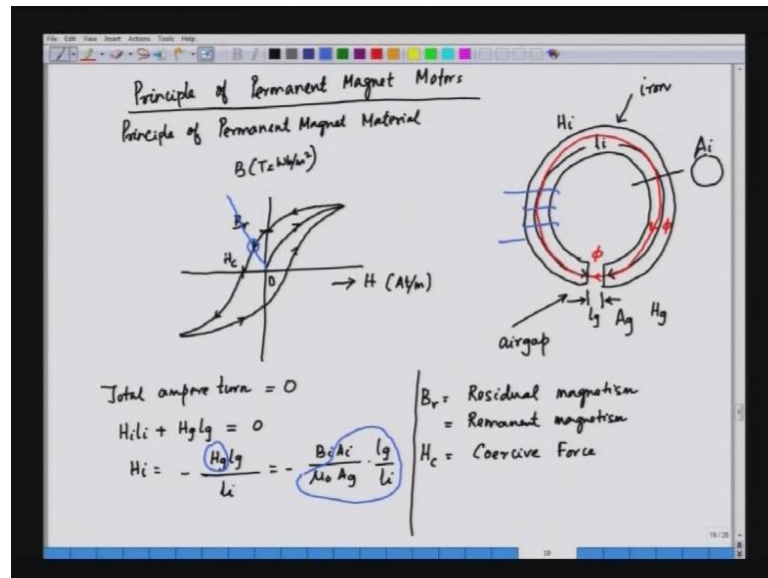 File Edit View Insert Actions Tools Help
Principle of Permanent Magnet Motors
Principle of Permanent Magnet Material
B (T= Wb/m²)
Br
Hc
0
→ H (At/m)
iron
Hi
li
Ai
ϕ
ϕ
lg Ag Hg
airgap
Total ampere turn = 0
Hili + Hglg = 0
Hi = - Hglg / li = - BiAi / μ0 Ag . lg / li
Br = Residual magnetism
= Remanant magnetism
Hc = Coercive Force
19